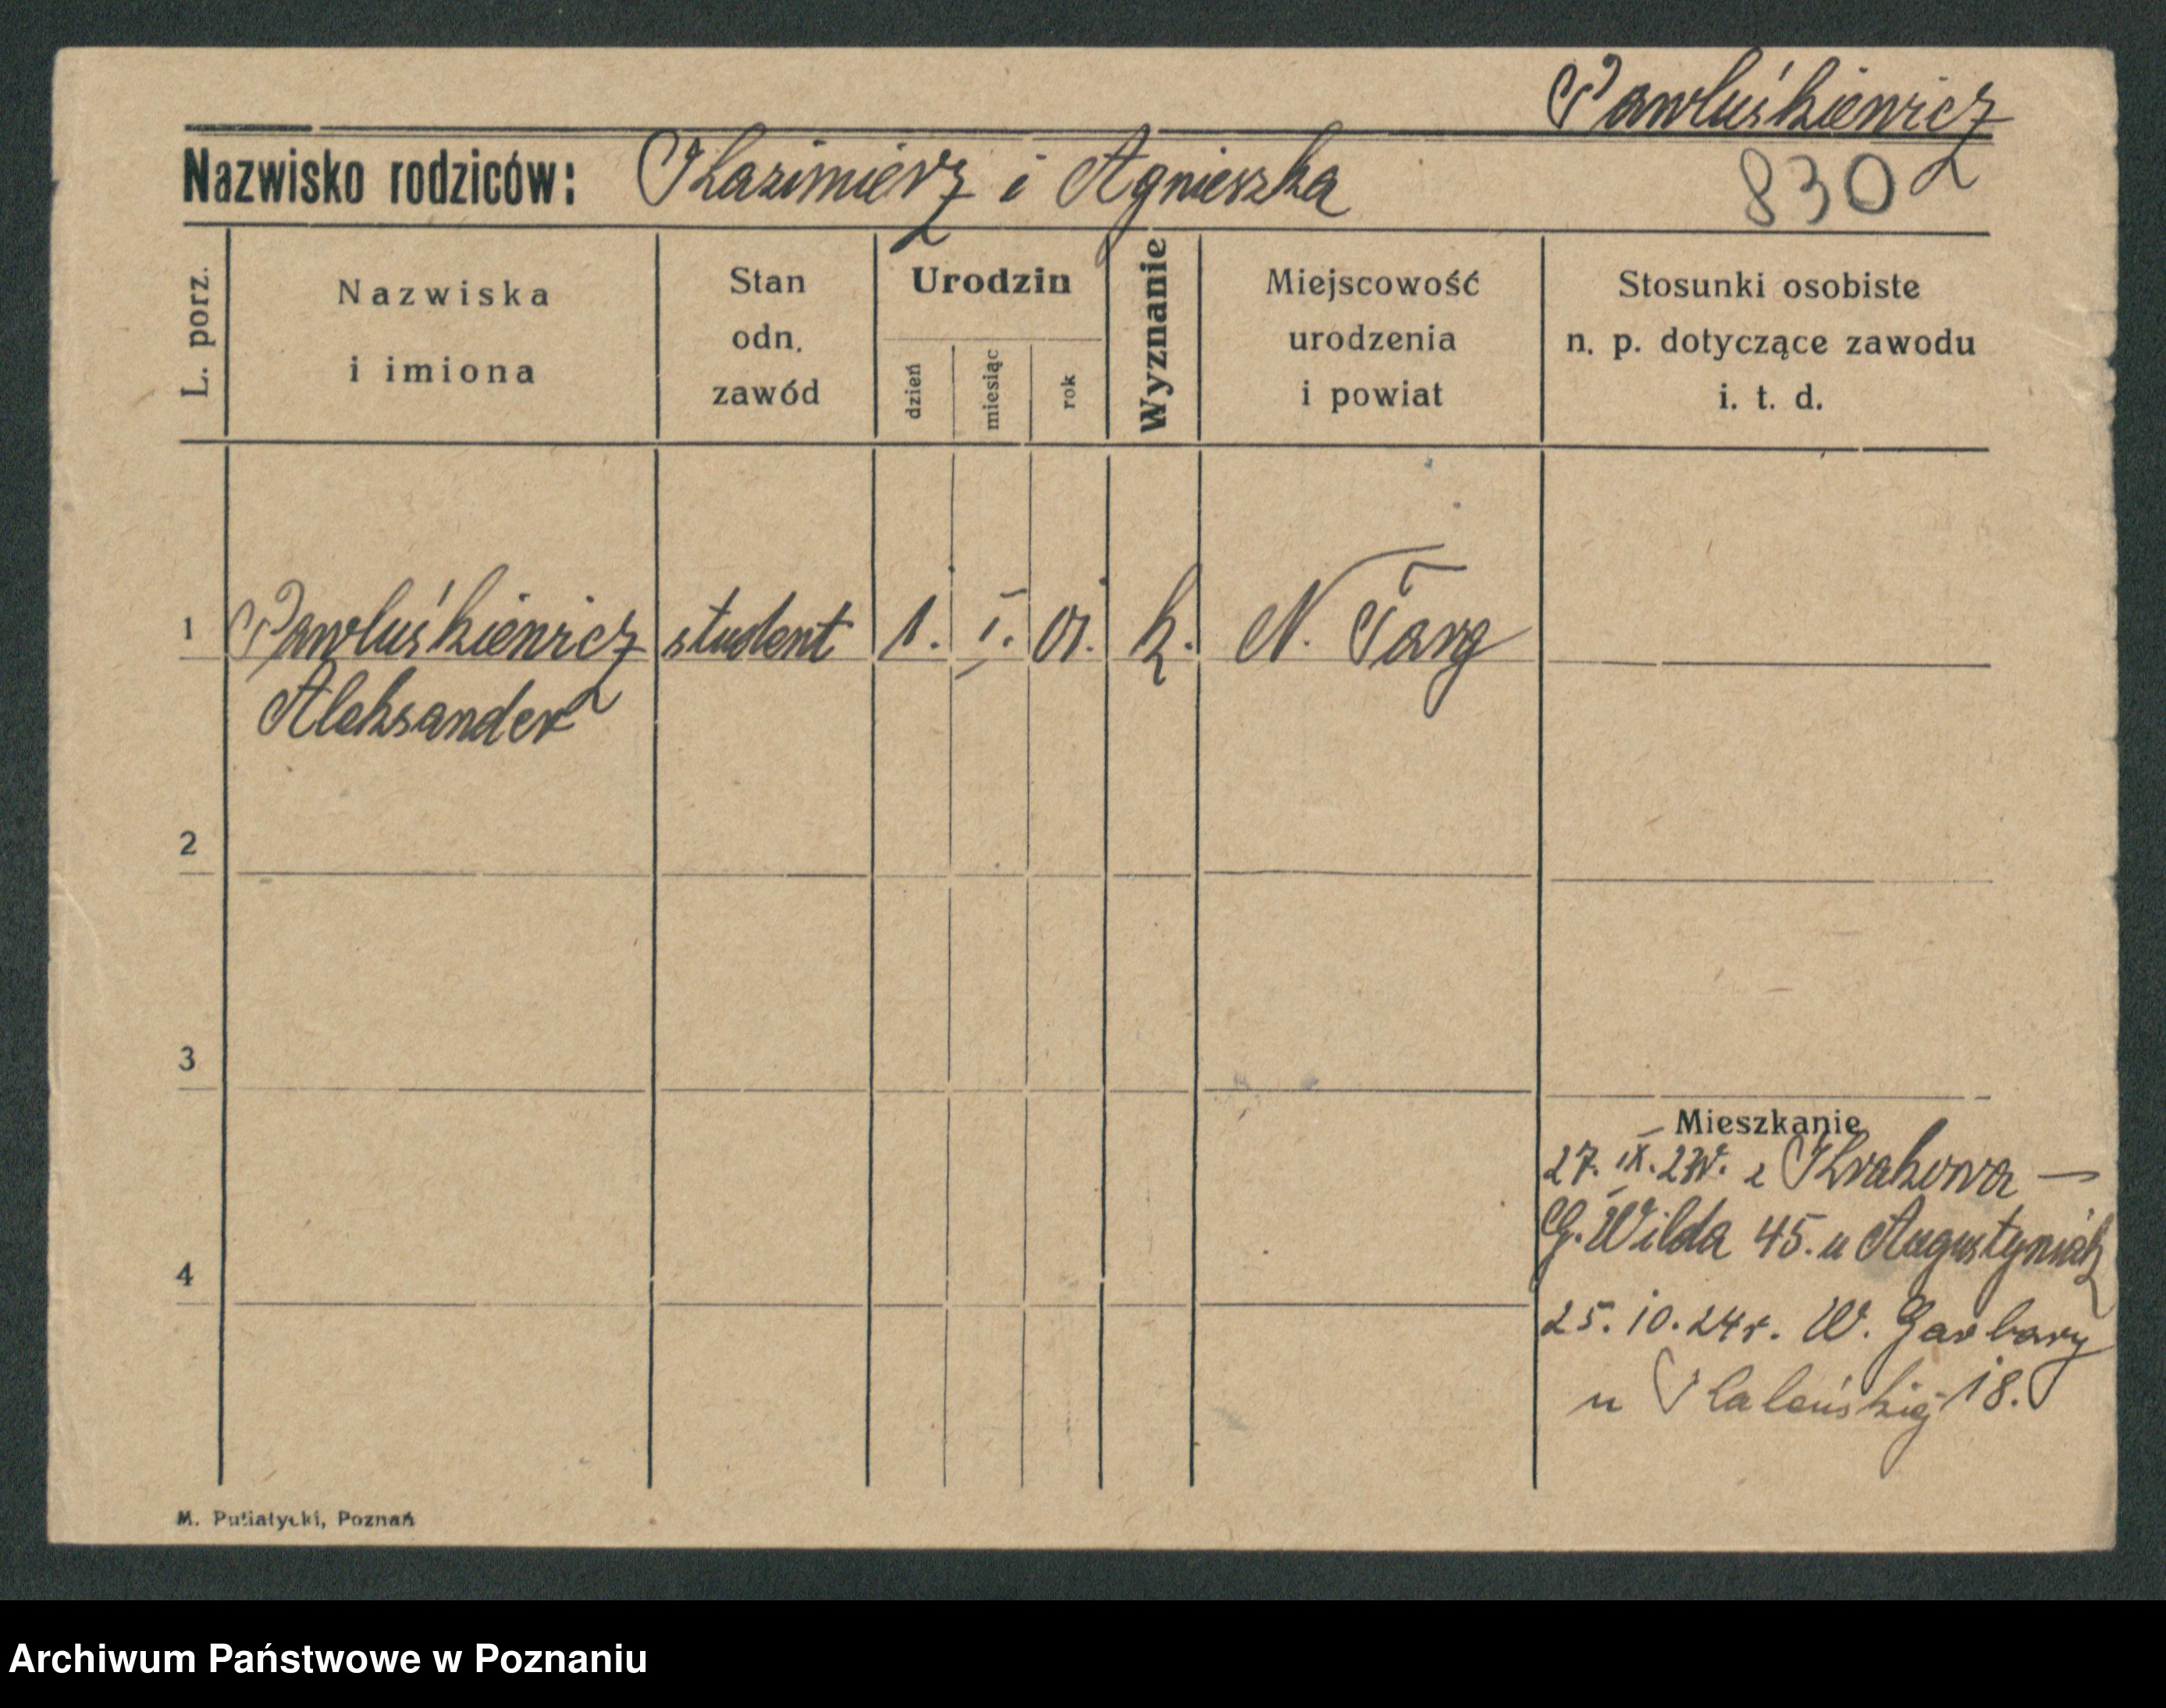 Pawluśkiewicz
Nazwisko rodziców: Kazimierz i Agnieszka 830
L. porz.
Nazwiska
i imiona
Stan
odn.
zawód
Urodzin
dzień
miesiąc
rok
Wyznanie
Miejscowość
urodzenia
i powiat
Stosunki osobiste
n. p. dotyczące zawodu
i. t. d.
1 Pawluśkiewicz student 1. I. 01. k. N. Targ
Aleksander
2
3
Mieszkanie
27. IX. 23r. z Krakowa —
G. Wilda 45. u Augustyniak
4
25. 10. 24r. W. Garbary
u 18.
M. Putiatycki, Poznań
Archiwum Państwowe w Poznaniu